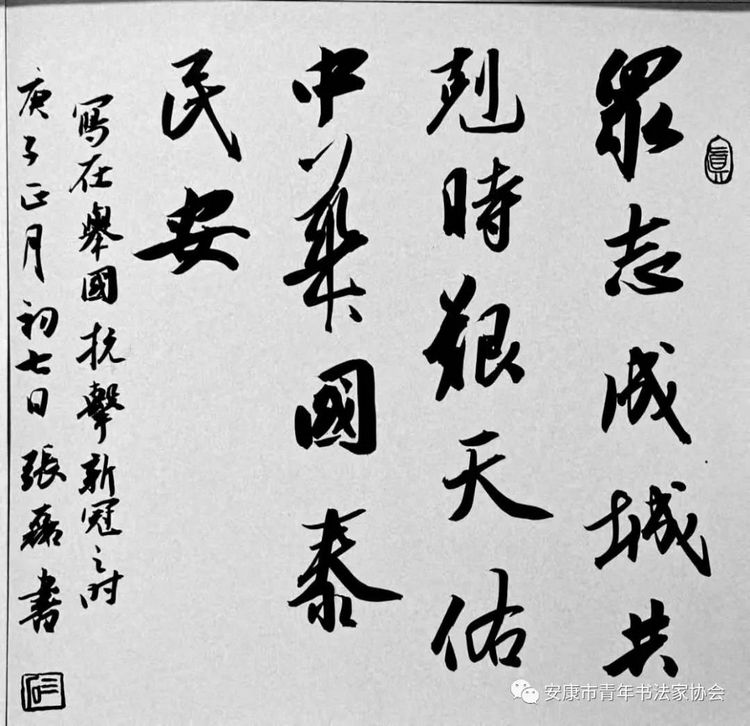 眾志成城共
剋時艱天佑
中華國泰
民安
寫在舉國抗擊新冠之时
庚子正月初七日張磊書
安康市青年书法家协会